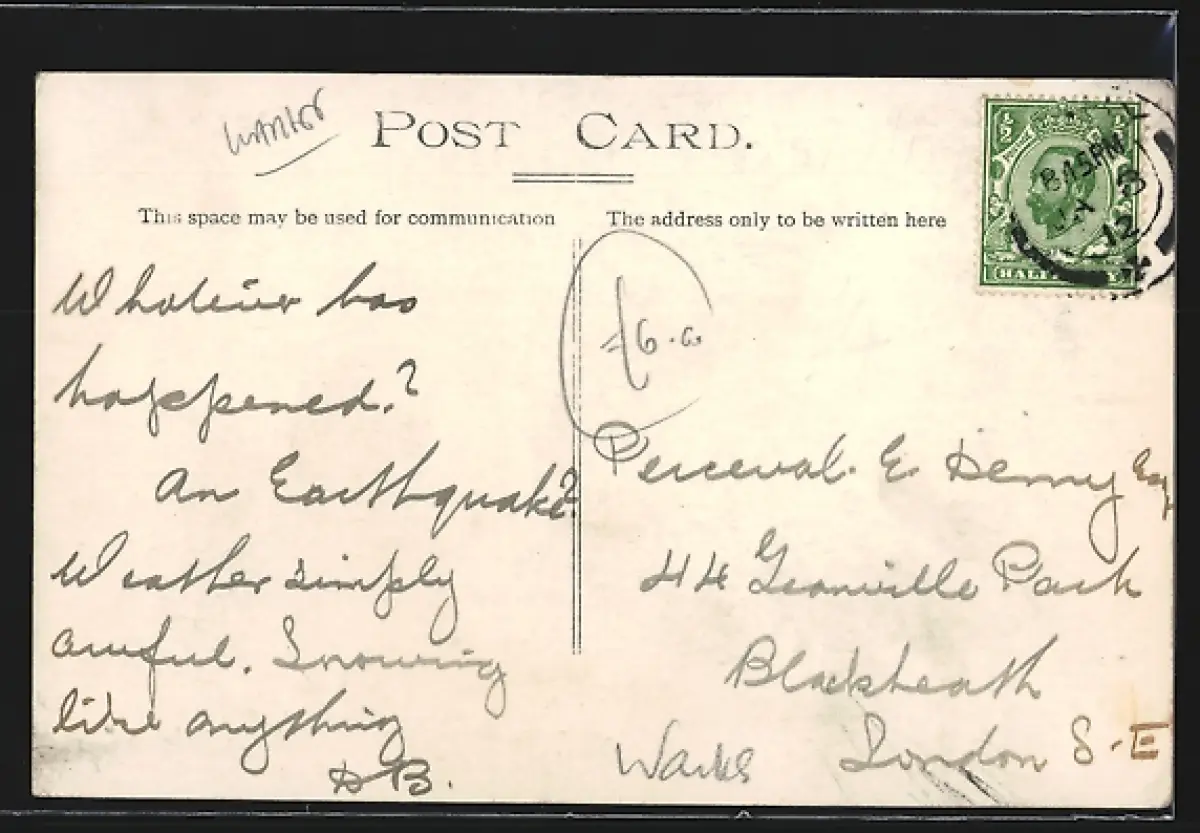 POST CARD.
This space may be used for communication
The address only to be written here
Whatever has
happened?
An Earthquake?
Weather simply
awful. Snowing
like anything
B.
£6.
Perceval. E. Denny Esq
44 Granville Park
Blackheath
London S.E
8.15PM
12
HALF